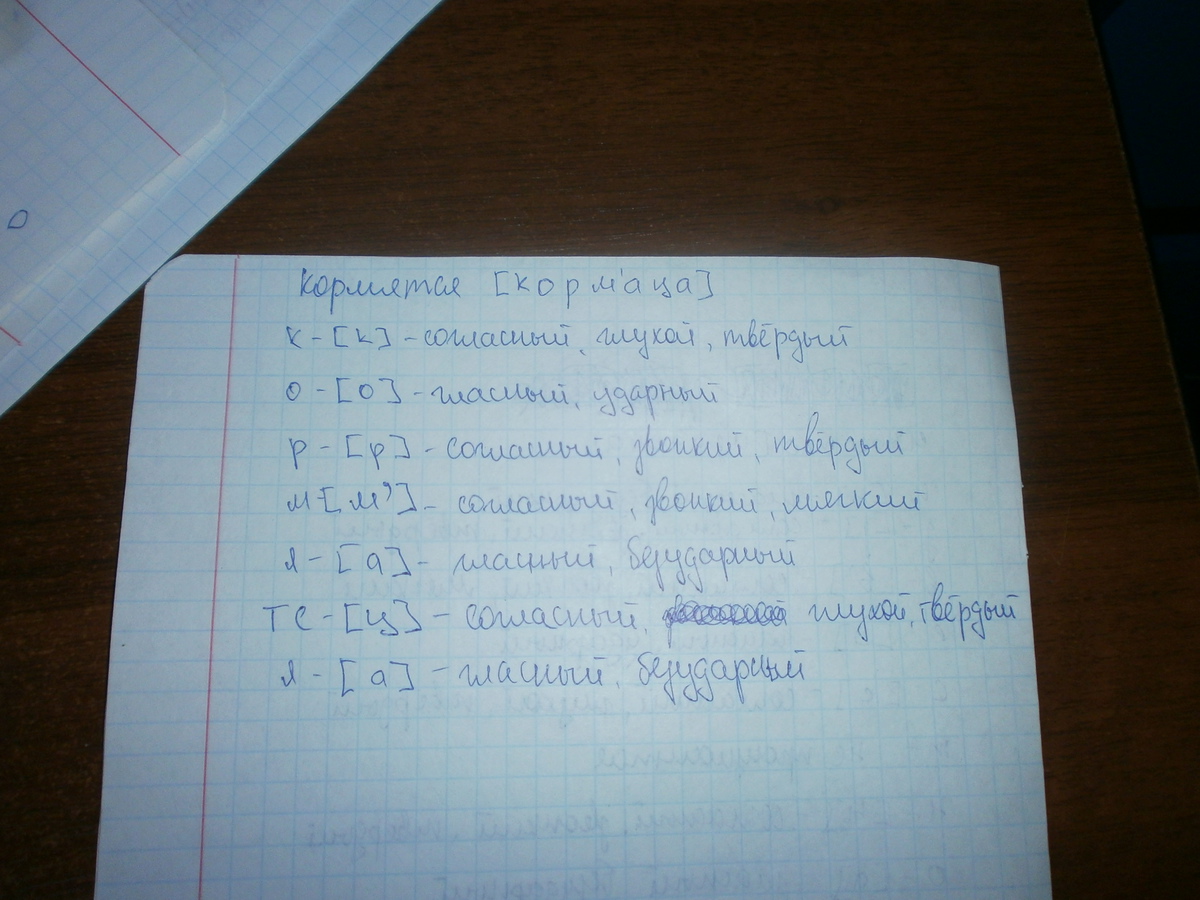 кормятся [корм'аца]
к-[к]-согласный, глухой, твёрдый
о-[о]-гласный, ударный
р-[р]-согласный, звонкий, твёрдый
м-[м']-согласный, звонкий, мягкий
я-[а]-гласный, безударный
тс-[ц]-согласный, глухой, твёрдый
я-[а]-гласный, безударный